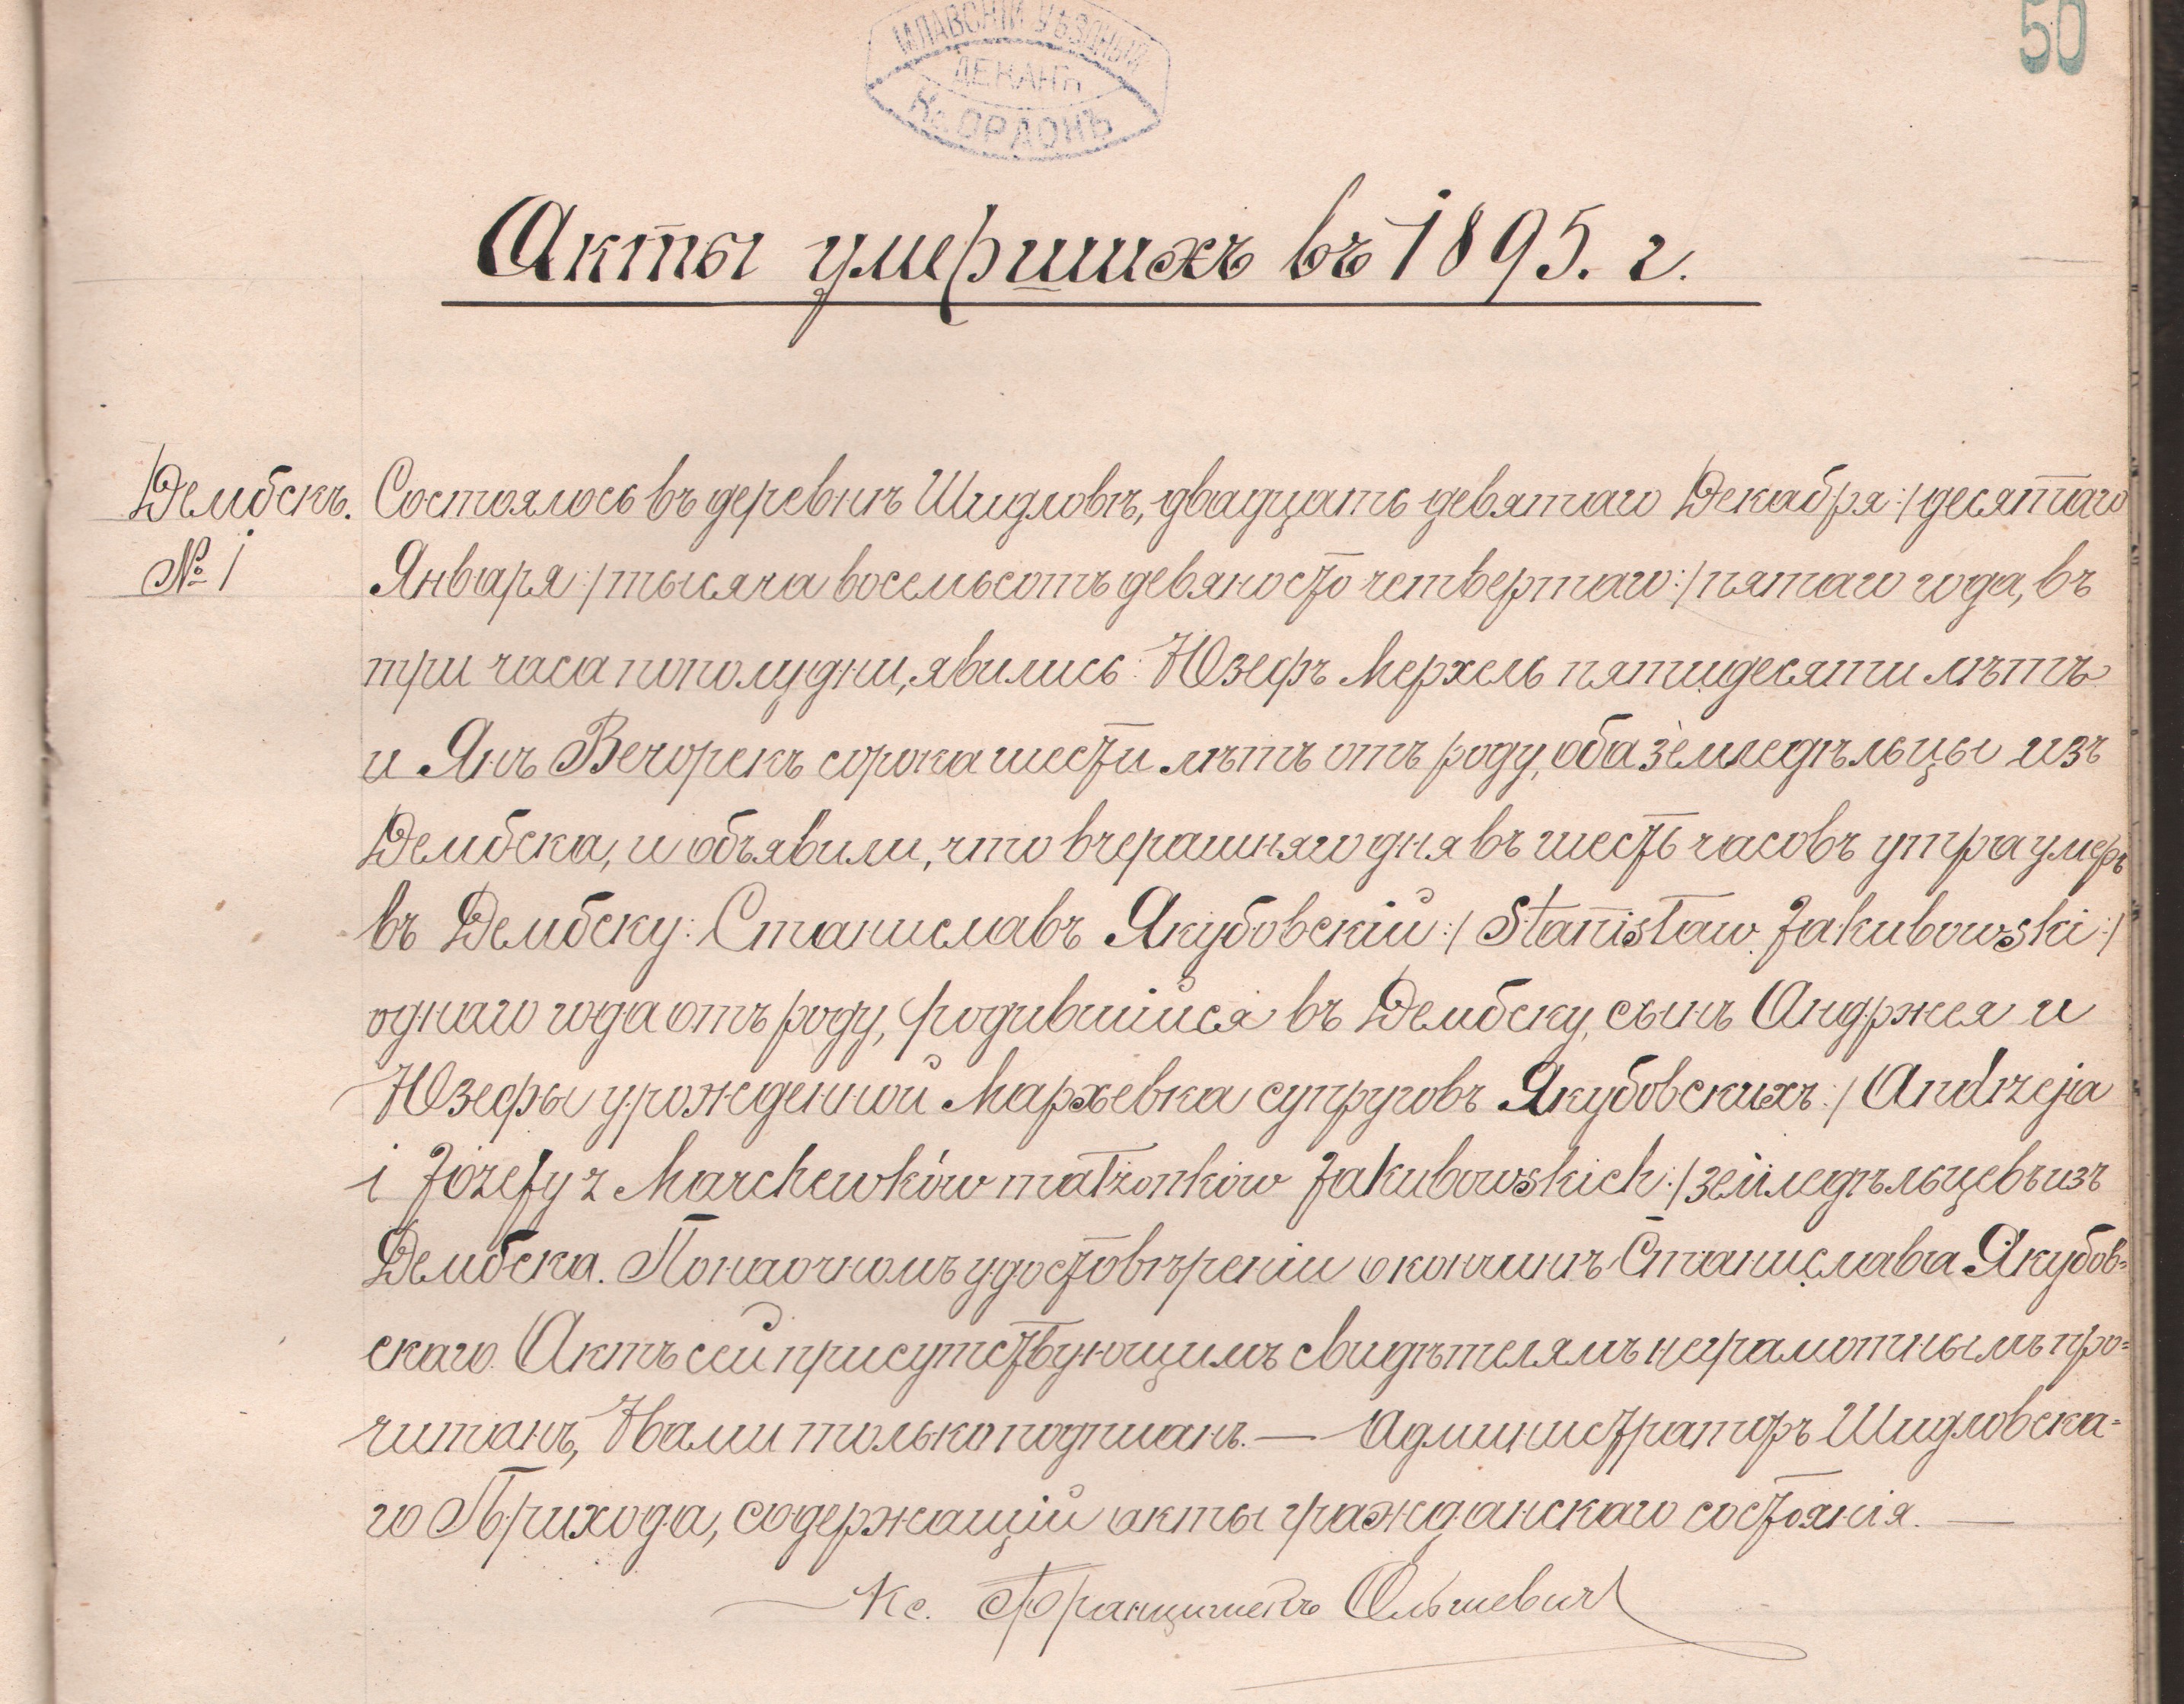 МЛАВСКІЙ УѢЗДНЫЙ
ДЕКАНЪ
Кс. ОРДОНЪ
50
Акты умершихъ въ 1895. г.
Дембскъ.
№ 1
Состоялось въ деревнѣ Шидловѣ, двадцать девятаго Декабря :/ десятаго
Января :/ тысяча восемьсотъ девяносто четвертаго :/ пятаго года, въ
три часа пополудни, явились: Юзефъ Мерхель пятидесяти лѣтъ
и Янъ Вечорекъ сорока шести лѣтъ отъ роду, оба земледѣльцы изъ
Дембска, и объявили, что вчерашняго дня въ шесть часовъ утра умеръ
въ Дембску: Станиславъ Якубовскій :/ Stanisław Jakubowski :/
однаго года отъ роду, родившійся въ Дембску, сынъ Андржея и
Юзефы урожденной Мархевка супруговъ Якубовскихъ :/ Andrzeja
i Józefy z Marchewków małżonków Jakubowskich :/ земледѣльцевъ изъ
Дембска. По наочномъ удостовѣреніи о кончинѣ Станислава Якубов=
скаго. Актъ сей присутствующимъ свидѣтелямъ неграмотнымъ про=
читанъ, Нами только подписанъ. — Администраторъ Шидловска=
го Прихода, содержащій акты гражданскаго состоянія. —
Кс. Францишекъ Ольшевичъ